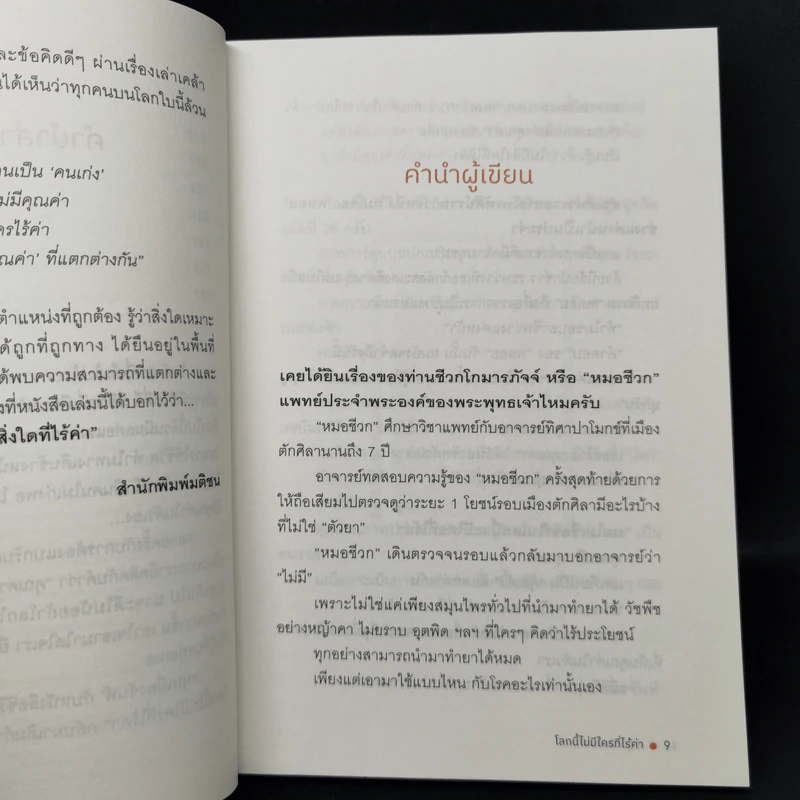 ละข้อคิดดีๆ ผ่านเรื่องเล่าเคล้า
นได้เห็นว่าทุกคนบนโลกใบนี้ล้วน
นเป็น ‘คนเก่ง’
ม่มีคุณค่า
ครไร้ค่า
ณค่า’ ที่แตกต่างกัน”
ตำแหน่งที่ถูกต้อง รู้ว่าสิ่งใดเหมาะ
ด้ถูกที่ถูกทาง ได้ยืนอยู่ในพื้นที่
ด้พบความสามารถที่แตกต่างและ
งที่หนังสือเล่มนี้ได้บอกไว้ว่า...
สิ่งใดที่ไร้ค่า”
สำนักพิมพ์มติชน
คำนำผู้เขียน
เคยได้ยินเรื่องของท่านชีวกโกมารภัจจ์ หรือ “หมอชีวก”
แพทย์ประจำพระองค์ของพระพุทธเจ้าไหมครับ
“หมอชีวก” ศึกษาวิชาแพทย์กับอาจารย์ทิศาปาโมกข์ที่เมือง
ตักศิลานานถึง 7 ปี
อาจารย์ทดสอบความรู้ของ “หมอชีวก” ครั้งสุดท้ายด้วยการ
ให้ถือเสียมไปตรวจดูว่าระยะ 1 โยชน์รอบเมืองตักศิลามีอะไรบ้าง
ที่ไม่ใช่ “ตัวยา”
“หมอชีวก” เดินตรวจจนรอบแล้วกลับมาบอกอาจารย์ว่า
“ไม่มี”
เพราะไม่ใช่แค่เพียงสมุนไพรทั่วไปที่นำมาทำยาได้ วัชพืช
อย่างหญ้าคา ไมยราบ อุตพิด ฯลฯ ที่ใครๆ คิดว่าไร้ประโยชน์
ทุกอย่างสามารถนำมาทำยาได้หมด
เพียงแต่เอามาใช้แบบไหน กับโรคอะไรเท่านั้นเอง
โลกนี้ไม่มีใครที่ไร้ค่า ● 9